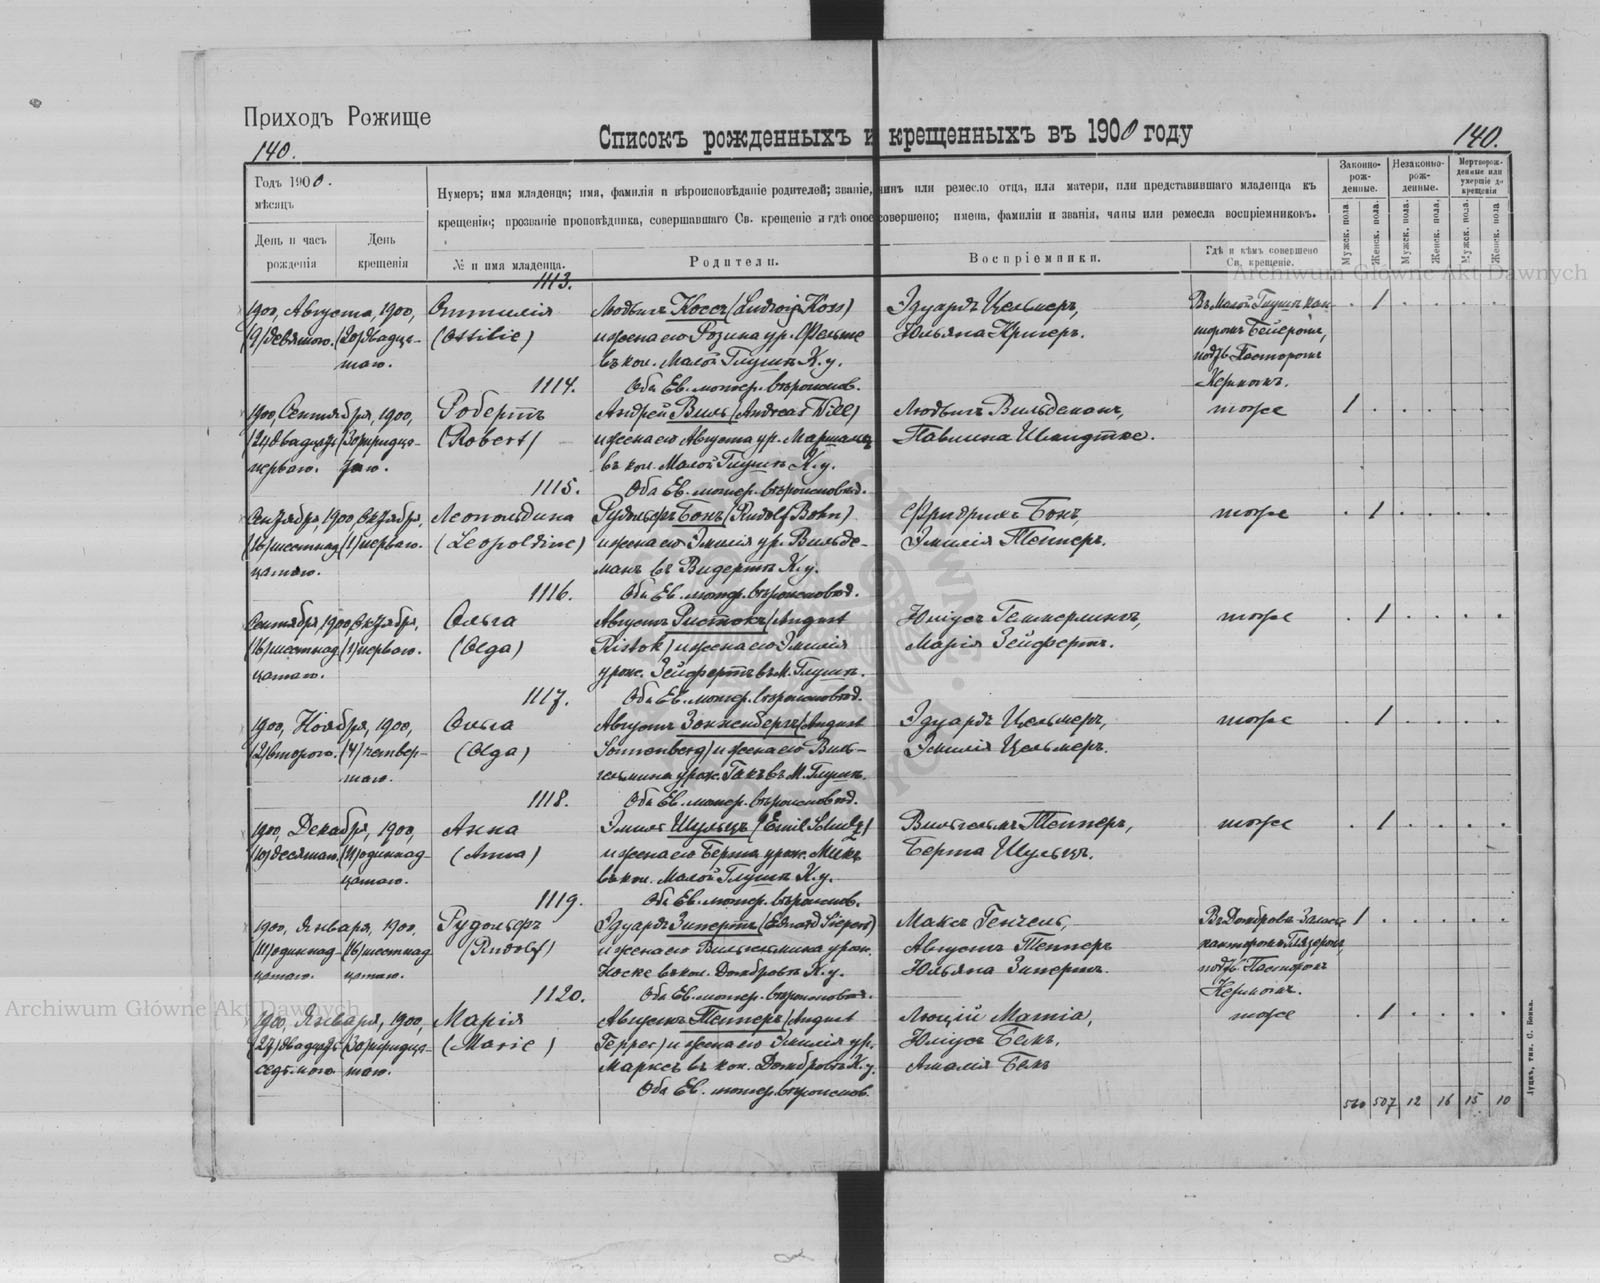 Приходъ Рожище
140.
Списокъ рожденныхъ и крещенныхъ въ 1900 году
140.
Годъ 1900.
мѣсяцъ
День и часъ рожденія
День крещенія
Нумеръ; имя младенца; имя, фамилія и вѣроисповѣданіе родителей; званіе, чинъ или ремесло отца, или матери, или представившаго младенца къ
крещенію; прозваніе проповѣдника, совершавшаго Св. крещеніе и гдѣ оное совершено; имена, фамиліи и званія, чины или ремесла воспріемниковъ.
№ и имя младенца.
Родители.
Воспріемники.
Гдѣ и кѣмъ совершено
Св. крещеніе.
Законно-
рож-
денные.
Незаконно-
рож-
денные.
Мертворож-
денные или
умершіе до
крещенія
Мужск. пола
Женск. пола.
Мужск. пола.
Женск. пола.
Мужск. пола.
Женск. пола
Archiwum Główne Akt Dawnych
1113.
1900, Августа, 1900, Оттилія Людвигъ Коссъ (Ludwig Koss) Эдуардъ Цельмеръ, Въ Малой Глушѣ кан- . 1 . . . .
(9) девятаго. (20) двадца- (Ottilie) и жена его Розина ур. Фельске Юльяна Кригеръ. торомъ Бейеромъ,
таго. въ кол. Малой Глушѣ К. у. подтв. Пасторомъ
1114. Оба Ев. лютер. вѣроисповѣд. Керномъ.
1900, Сентября, 1900, Робертъ Андрей Виль (Andreas Will) Людвигъ Вильдеманъ, тоже 1 . . . . .
(21) двадцать (30) тридца- (Robert) и жена его Августа ур. Паулина Шмидтке.
перваго. таго. въ кол. Малой Глушѣ К. у.
1115. Оба Ев. лютер. вѣроисповѣд.
Сентября, 1900, Октября, Леопольдина Рудольфъ Бонъ (Rudolf Bohn) Фридрихъ Бонъ, тоже . 1 . . . .
(16) шестнад- (1) перваго. (Leopoldine) и жена его Эмилія ур. Вильде- Эмилія Тепперъ.
цатаго. манъ въ Видертѣ К. у.
1116. Оба Ев. лютер. вѣроисповѣд.
Сентября, 1900, Октября, Ольга Августъ Ристокъ (August Юліусъ Геммерлингъ, тоже . 1 . . . .
(16) шестнад- (1) перваго. (Olga) Ristok) и жена его Эмилія Марія Зейфертъ.
цатаго. урож. Зейфертъ въ М. Глушѣ.
1117. Оба Ев. лютер. вѣроисповѣд.
1900, Ноября, 1900, Ольга Августъ Зонненбергъ (August Эдуардъ Цельмеръ, тоже . 1 . . . .
(2) второго. (4) четвер- (Olga) Sonnenberg) и жена его Виль- Эмилія Цельмеръ.
таго. гельмина урож. Гакъ въ М. Глушѣ.
1118. Оба Ев. лютер. вѣроисповѣд.
1900, Декабря, 1900, Анна Эмиль Шульцъ (Emil Schulz) Вильгельмъ Тепперъ, тоже . 1 . . . .
(10) десятаго. (11) одиннад- (Anna) и жена его Берта урож. Берта Шульцъ.
цатаго. въ кол. Малой Глушѣ К. у.
1119. Оба Ев. лютер. вѣроисповѣд.
1900, Января, 1900, Рудольфъ Эдуардъ Зипертъ (Eduard Siepert) Максъ Генчель, Въ Домбровѣ 1 . . . . .
(11) одиннад- (16) шестнад- (Rudolf) и жена его Вильгельмина урож. Августъ Тепперъ канторомъ Глязеромъ,
цатаго. цатаго. Носке въ кол. Домбровѣ К. у. Юльяна Зипертъ. подтв. Пасторомъ
1120. Оба Ев. лютер. вѣроисповѣд. Керномъ.
Archiwum Główne Akt Dawnych
1900, Января, 1900, Марія Августъ Тепперъ (August Люцій Матіа, тоже . 1 . . . .
(27) двадцать (30) тридца- (Marie) Tepper) и жена его Эмилія ур. Юліусъ Бемъ,
седьмого таго. Марксъ въ кол. Домбровѣ К. у. Амалія Бемъ
Оба Ев. лютер. вѣроисповѣд.
560 507 12 16 15 10
Луцкъ, тип. С. Бонка.